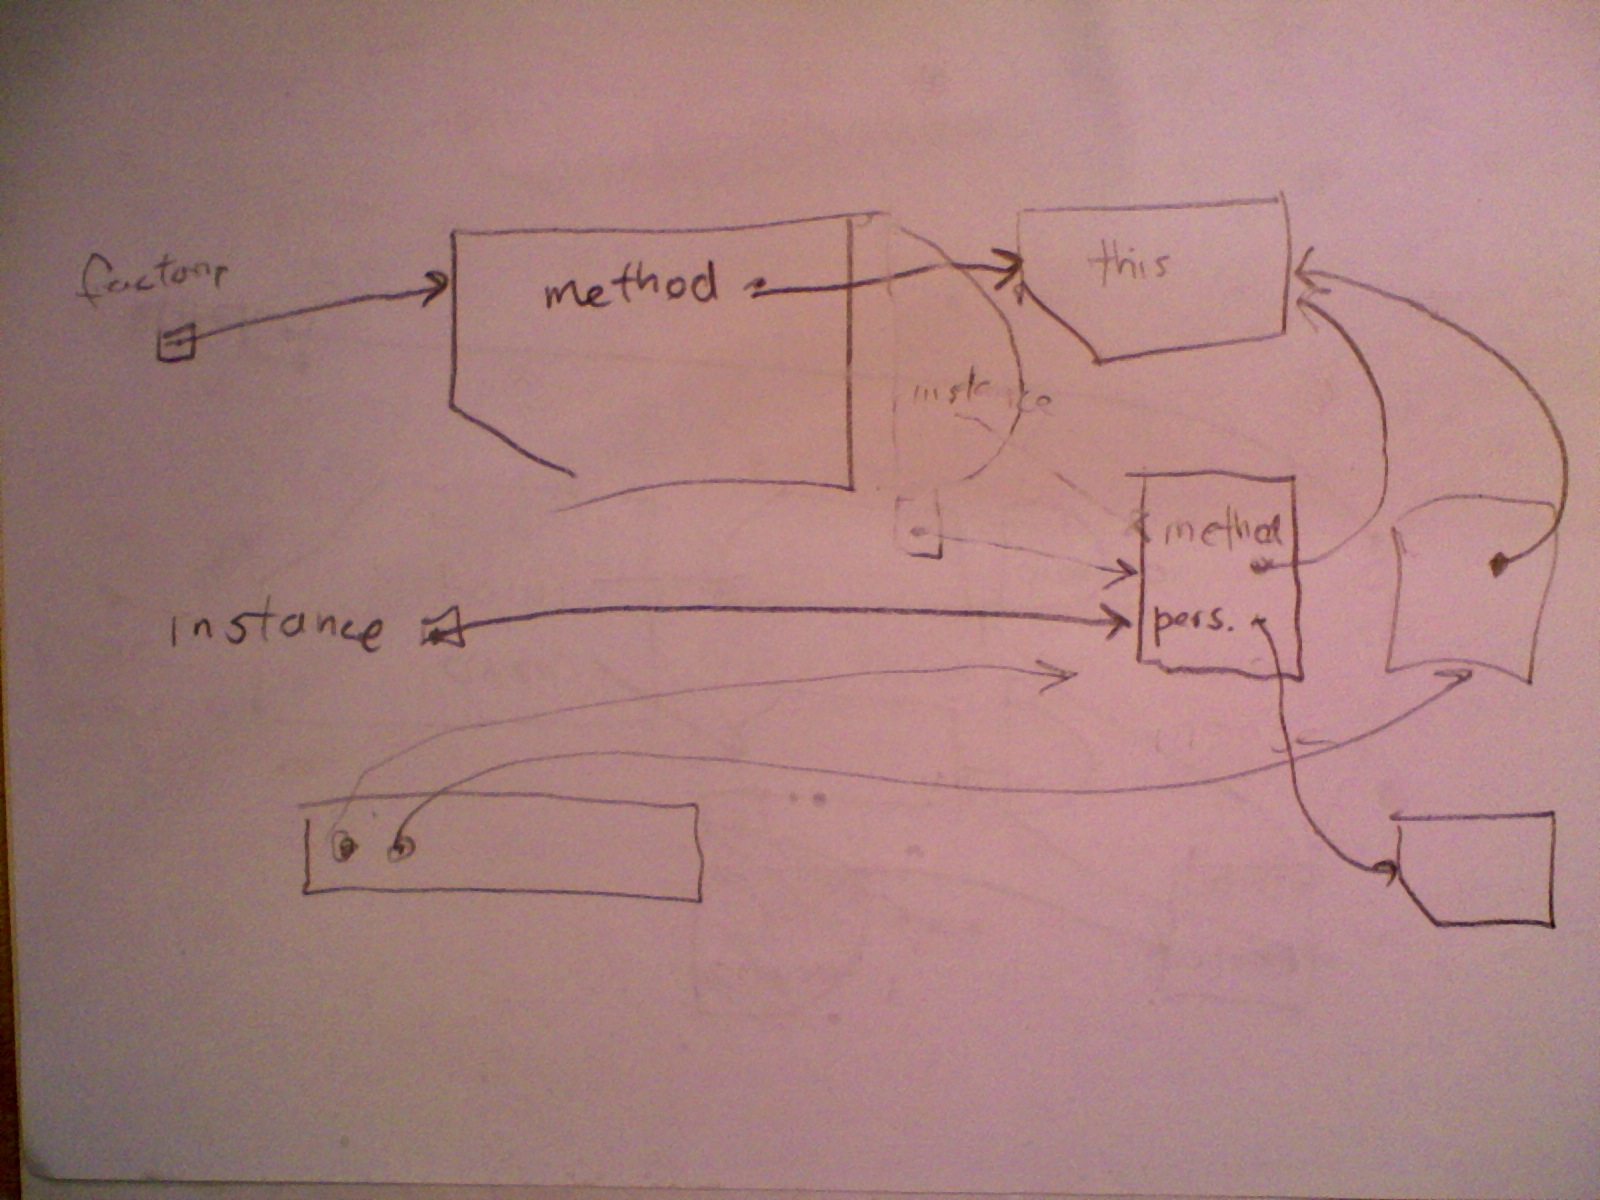 factory
method
this
instance
method
instance
pers.